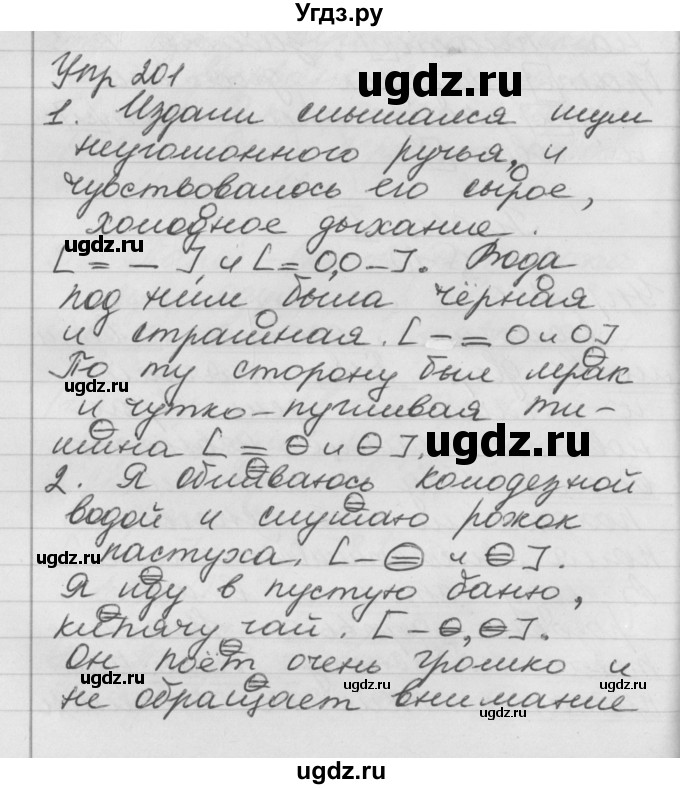 Угдз.ру
Упр 201
ugdz.ru
1. Издали слышался шум
неугомонного ручья, и
чувствовалось его сырое,
холодное дыхание.
ugdz.ru
[= –], и [= O, O –]. Вода
под ним была чёрная
и страшная. [– = O и O]
По ту сторону был мрак
и чутко-пугливая ти-
шина [= ⊖ и ⊖].
ugdz.ru
2. Я обливаюсь колодезной
водой и слушаю рожок
пастуха. [– ⊖ и ⊖].
ugdz.ru
Я иду в пустую баню,
кипячу чай. [– ⊖, ⊖].
ugdz.ru
Он поёт очень громко и
ugdz.ru
ugdz.ru
не обращает внимание
ugdz.ru
ugdz.ru